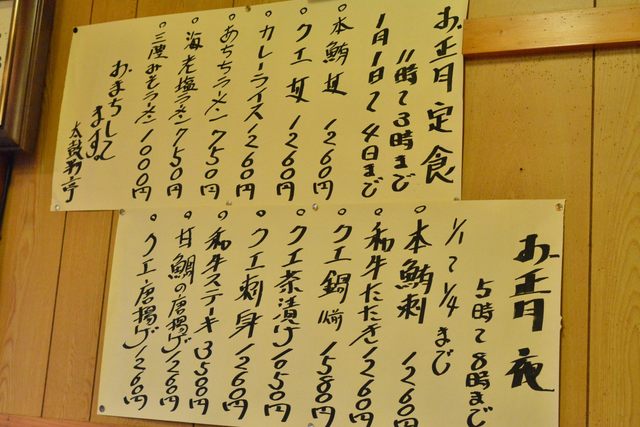 お正月定食
11時〜3時まで
1月1日〜4日まで
○本鮪丼 1260円
○クエ丼 1260円
○カレーライス 1260円
○あちちラーメン 750円
○海老塩ラーメン 750円
○三陸みそラーメン 1000円
おまちして
ます。
お正月 夜
5時〜8時まで
1/1〜1/4まで
○本鮪刺 1260円
○和牛たたき 1260円
○クエ鍋 1580円
○クエ茶漬け 1050円
○クエ刺身 1260円
○和牛ステーキ 3500円
○甘鯛の唐揚げ 1260円
○クエ唐揚げ 1260円